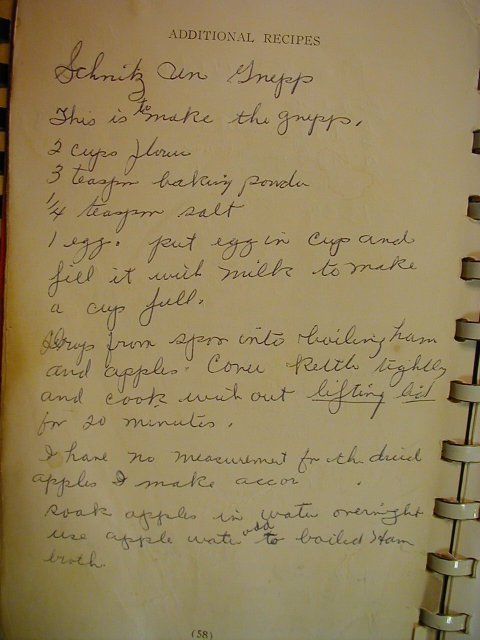 ADDITIONAL RECIPES
Schnitz Un Gnepp
This is to make the gnepps.
2 cups flour
3 teaspn baking powder
1/4 teaspn salt
1 egg. put egg in cup and
fill it with milk to make
a cup full.
Drop from spon into boiling ham
and apples. Cover kettle tightly
and cook with out lifting lid
for 20 minutes.
I have no measurement for the dried
apples I make accor
soak apples in water overnight
use apple water add to boiled Ham
broth.
(58)